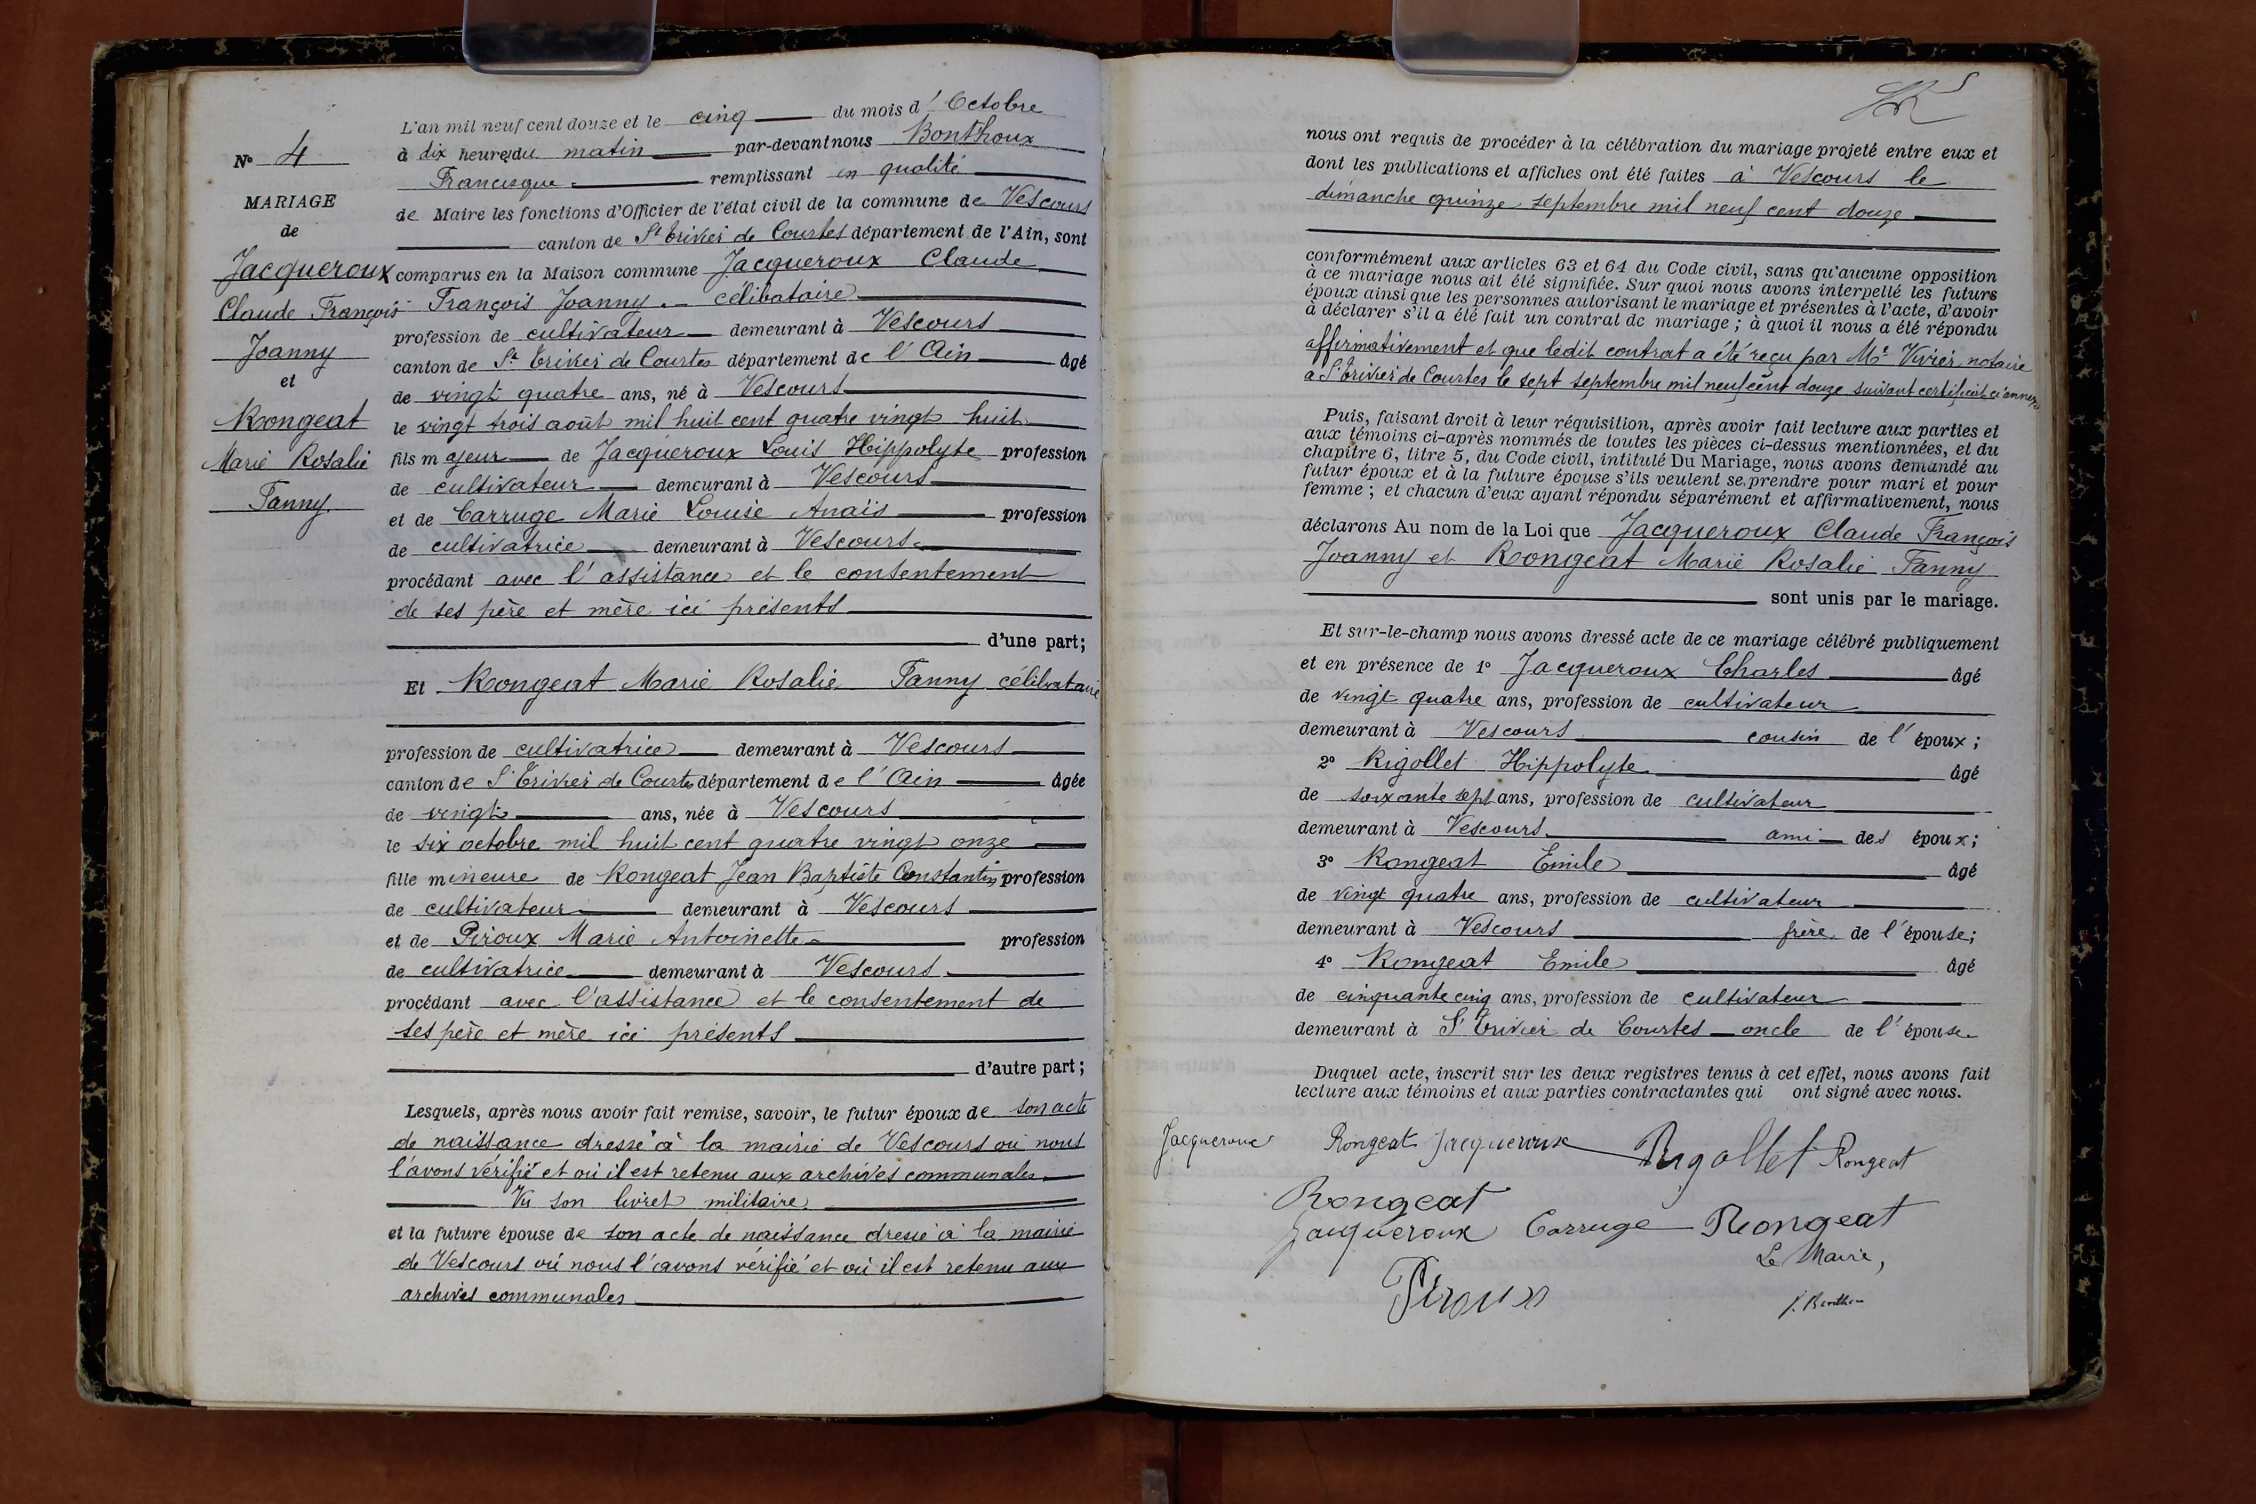 N° 4
MARIAGE
de
Jacqueroux
Claude François
Joanny
et
Rongeat
Marie Rosalie
Fanny
L'an mil neuf cent douze et le cinq du mois d'Octobre
à dix heures du matin par-devant nous Bonthoux
Francisque remplissant en qualité
de Maire les fonctions d'Officier de l'état civil de la commune de Vescours
canton de St Trivier de Courtes département de l'Ain, sont
comparus en la Maison commune Jacqueroux Claude
François Joanny célibataire
profession de cultivateur demeurant à Vescours
canton de St Trivier de Courtes département de l'Ain âgé
de vingt quatre ans, né à Vescours
le vingt trois août mil huit cent quatre vingt huit
fils majeur de Jacqueroux Louis Hippolyte profession
de cultivateur demeurant à Vescours
et de Carruge Marie Louise Anaïs profession
de cultivatrice demeurant à Vescours
procédant avec l'assistance et le consentement
de ses père et mère ici présents
d'une part;
Et Rongeat Marie Rosalie Fanny célibataire
profession de cultivatrice demeurant à Vescours
canton de St Trivier de Courtes département de l'Ain âgée
de vingt ans, née à Vescours
le six octobre mil huit cent quatre vingt onze
fille mineure de Rongeat Jean Baptiste Constantin profession
de cultivateur demeurant à Vescours
et de Piroux Marie Antoinette profession
de cultivatrice demeurant à Vescours
procédant avec l'assistance et le consentement de
ses père et mère ici présents
d'autre part;
Lesquels, après nous avoir fait remise, savoir, le futur époux de son acte
de naissance dressé à la mairie de Vescours où nous
l'avons vérifié et où il est retenu aux archives communales
Vu son livret militaire
et la future épouse de son acte de naissance dressé à la mairie
de Vescours où nous l'avons vérifié et où il est retenu aux
archives communales
nous ont requis de procéder à la célébration du mariage projeté entre eux et
dont les publications et affiches ont été faites à Vescours le
dimanche quinze septembre mil neuf cent douze
conformément aux articles 63 et 64 du Code civil, sans qu'aucune opposition
à ce mariage nous ait été signifiée. Sur quoi nous avons interpellé les futurs
époux ainsi que les personnes autorisant le mariage et présentes à l'acte, d'avoir
à déclarer s'il a été fait un contrat de mariage; à quoi il nous a été répondu
affirmativement et que ledit contrat a été reçu par Me Vivier, notaire
à St Trivier de Courtes le sept septembre mil neuf cent douze suivant certificat ci annexé
Puis, faisant droit à leur réquisition, après avoir fait lecture aux parties et
aux témoins ci-après nommés de toutes les pièces ci-dessus mentionnées, et du
chapitre 6, titre 5, du Code civil, intitulé Du Mariage, nous avons demandé au
futur époux et à la future épouse s'ils veulent se prendre pour mari et pour
femme; et chacun d'eux ayant répondu séparément et affirmativement, nous
déclarons Au nom de la Loi que Jacqueroux Claude François
Joanny et Rongeat Marie Rosalie Fanny
sont unis par le mariage.
Et sur-le-champ nous avons dressé acte de ce mariage célébré publiquement
et en présence de 1° Jacqueroux Charles âgé
de vingt quatre ans, profession de cultivateur
demeurant à Vescours cousin de l'époux;
2° Rigollet Hippolyte âgé
de soixante sept ans, profession de cultivateur
demeurant à Vescours ami des époux;
3° Rongeat Emile âgé
de vingt quatre ans, profession de cultivateur
demeurant à Vescours frère de l'épouse;
4° Rongeat Emile âgé
de cinquante cinq ans, profession de cultivateur
demeurant à St Trivier de Courtes oncle de l'épouse
Duquel acte, inscrit sur les deux registres tenus à cet effet, nous avons fait
lecture aux témoins et aux parties contractantes qui ont signé avec nous.
Jacqueroux Rongeat Jacqueroux Rigollet Rongeat
Rongeat
Jacqueroux Carruge Rongeat
Le Maire,
Piroux